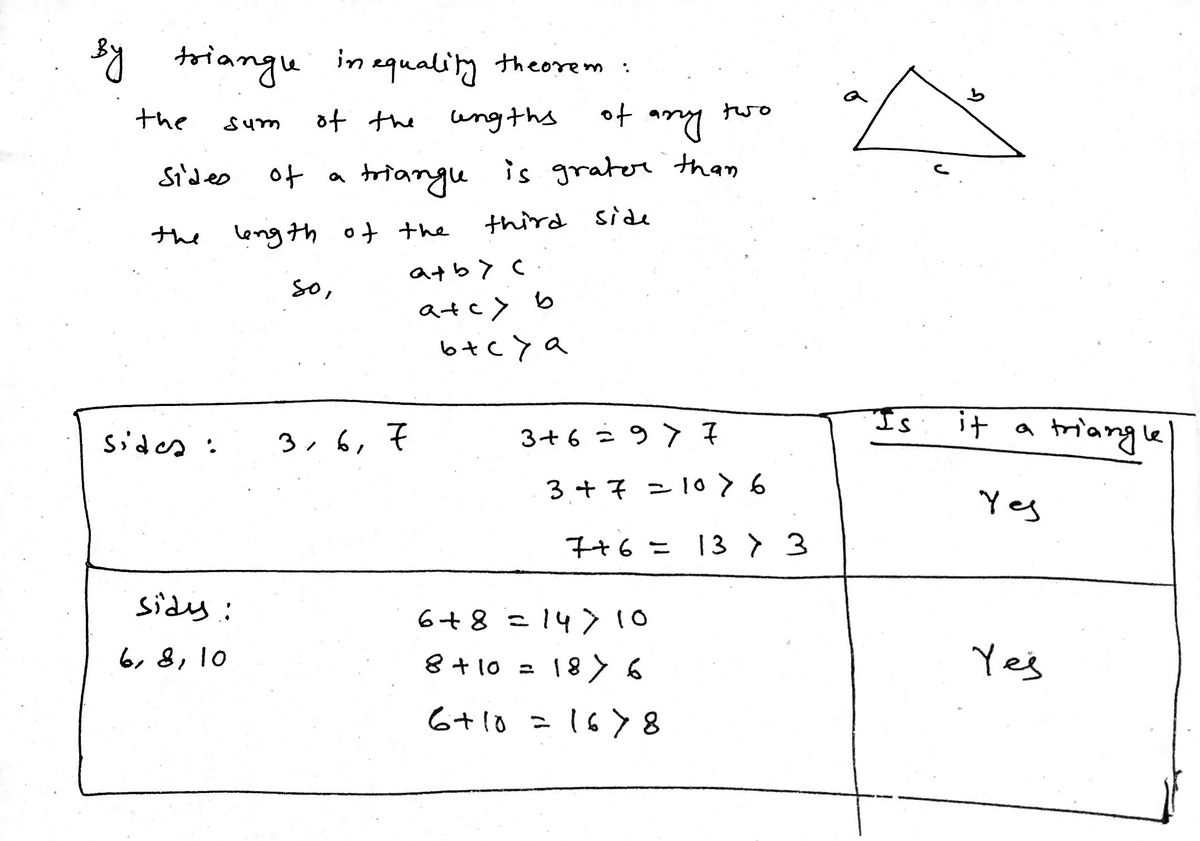 By triangle inequality theorem :
the sum of the lengths of any two
sides of a triangle is grater than
the length of the third side
so, a+b > c
a+c > b
b+c > a
a
b
c
Is it a triangle
sides : 3, 6, 7 3+6 = 9 > 7
3+7 = 10 > 6
7+6 = 13 > 3
Yes
sides :
6, 8, 10
6+8 = 14 > 10
8+10 = 18 > 6
6+10 = 16 > 8
Yes